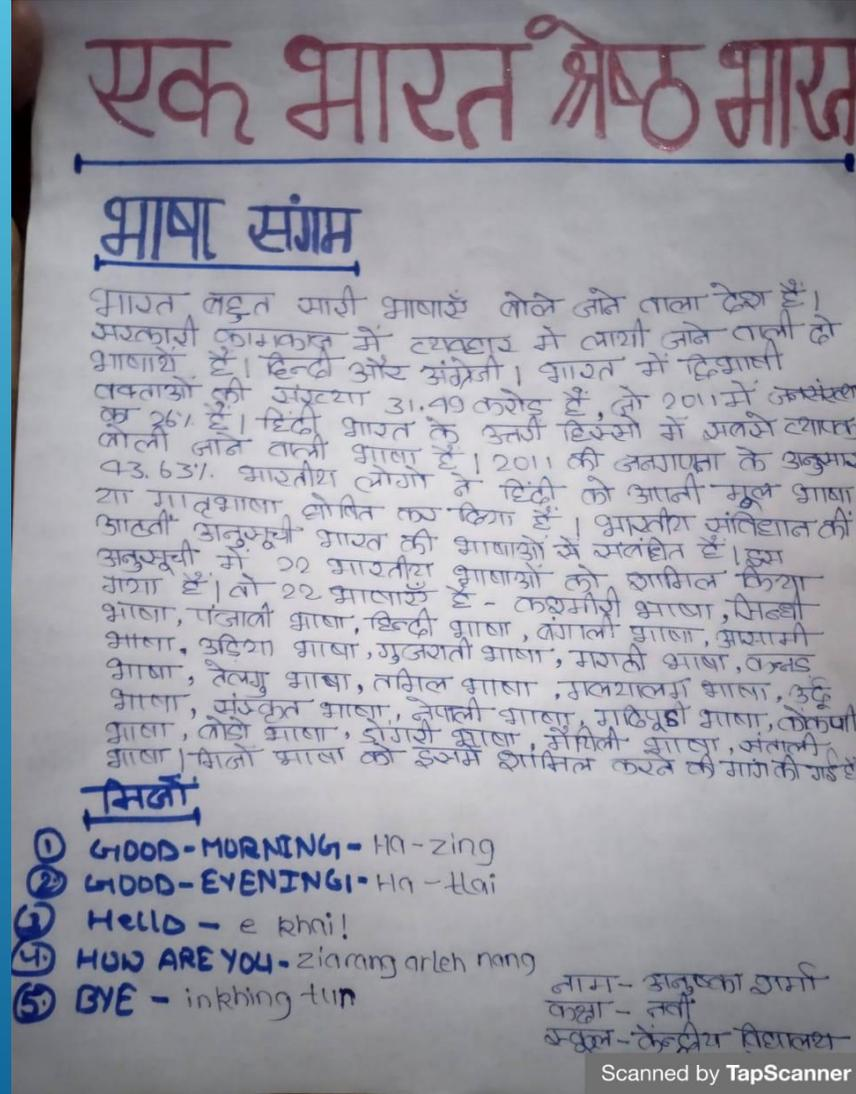 एक भारत श्रेष्ठ भारत
भाषा संगम
भारत बहुत सारी भाषाएँ बोले जाने वाला देश हैं।
सरकारी कामकाज में व्यवहार में लायी जाने वाली दो
भाषायें हैं। हिन्दी और अंग्रेजी। भारत में द्विभाषी
वक्ताओं की संख्या 31.49 करोड़ हैं, जो 2011 में जनसंख्या
का 26% हैं। हिंदी भारत के उत्तरी हिस्सों में सबसे व्यापक
बोली जाने वाली भाषा हैं। 2011 की जनगणना के अनुसार
43.63% भारतीय लोगों ने हिंदी को अपनी मूल भाषा
या मातृभाषा घोषित कर दिया हैं। भारतीय संविधान की
आठवीं अनुसूची भारत की भाषाओं से संबंधित हैं। इस
अनुसूची में 22 भारतीय भाषाओं को शामिल किया
गया हैं। वो 22 भाषाएँ हैं - कश्मीरी भाषा, सिन्धी
भाषा, पंजाबी भाषा, हिन्दी भाषा, बंगाली भाषा, आसामी
भाषा, उड़िया भाषा, गुजराती भाषा, मराठी भाषा, कन्नड़
भाषा, तेलगु भाषा, तमिल भाषा, मलयालम भाषा, उर्दू
भाषा, संस्कृत भाषा, नेपाली भाषा, भाषा, कोंकणी
भाषा, बोडो भाषा, डोगरी भाषा, मैथिली भाषा, संताली
भाषा। मिजो भाषा को इसमें शामिल करने की मांग की गई हैं
मिजो
① GOOD-MORNING- Ha-zing
② GOOD-EVENING- Ha-tlai
③ Hello - e khai!
④ HOW ARE YOU- ziarang arleh nang
⑤ BYE - inkhing tun
नाम- अनुष्का शर्मा
कक्षा - नवीं
स्कूल- केन्द्रीय विद्यालय
Scanned by TapScanner